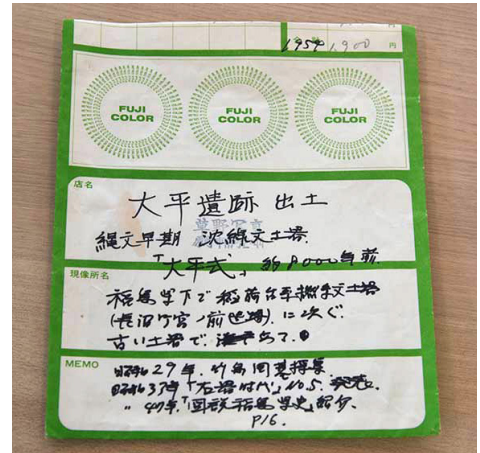 1954 1,900 円
FUJI COLOR FUJI COLOR FUJI COLOR
店名
大平遺跡 出土
縄文早期 沈線文土器
「大平式」 約8000年前
現像所名
福島県下で稲荷台系撚糸文土器
(長沼町宮ノ前遺跡)に次ぐ
古い土器で あて。
MEMO
昭和29年. 竹島国基採集
昭和37年「石器時代」No5. 発表.
〃 47年.「図説福島県史」紹介.
P16.